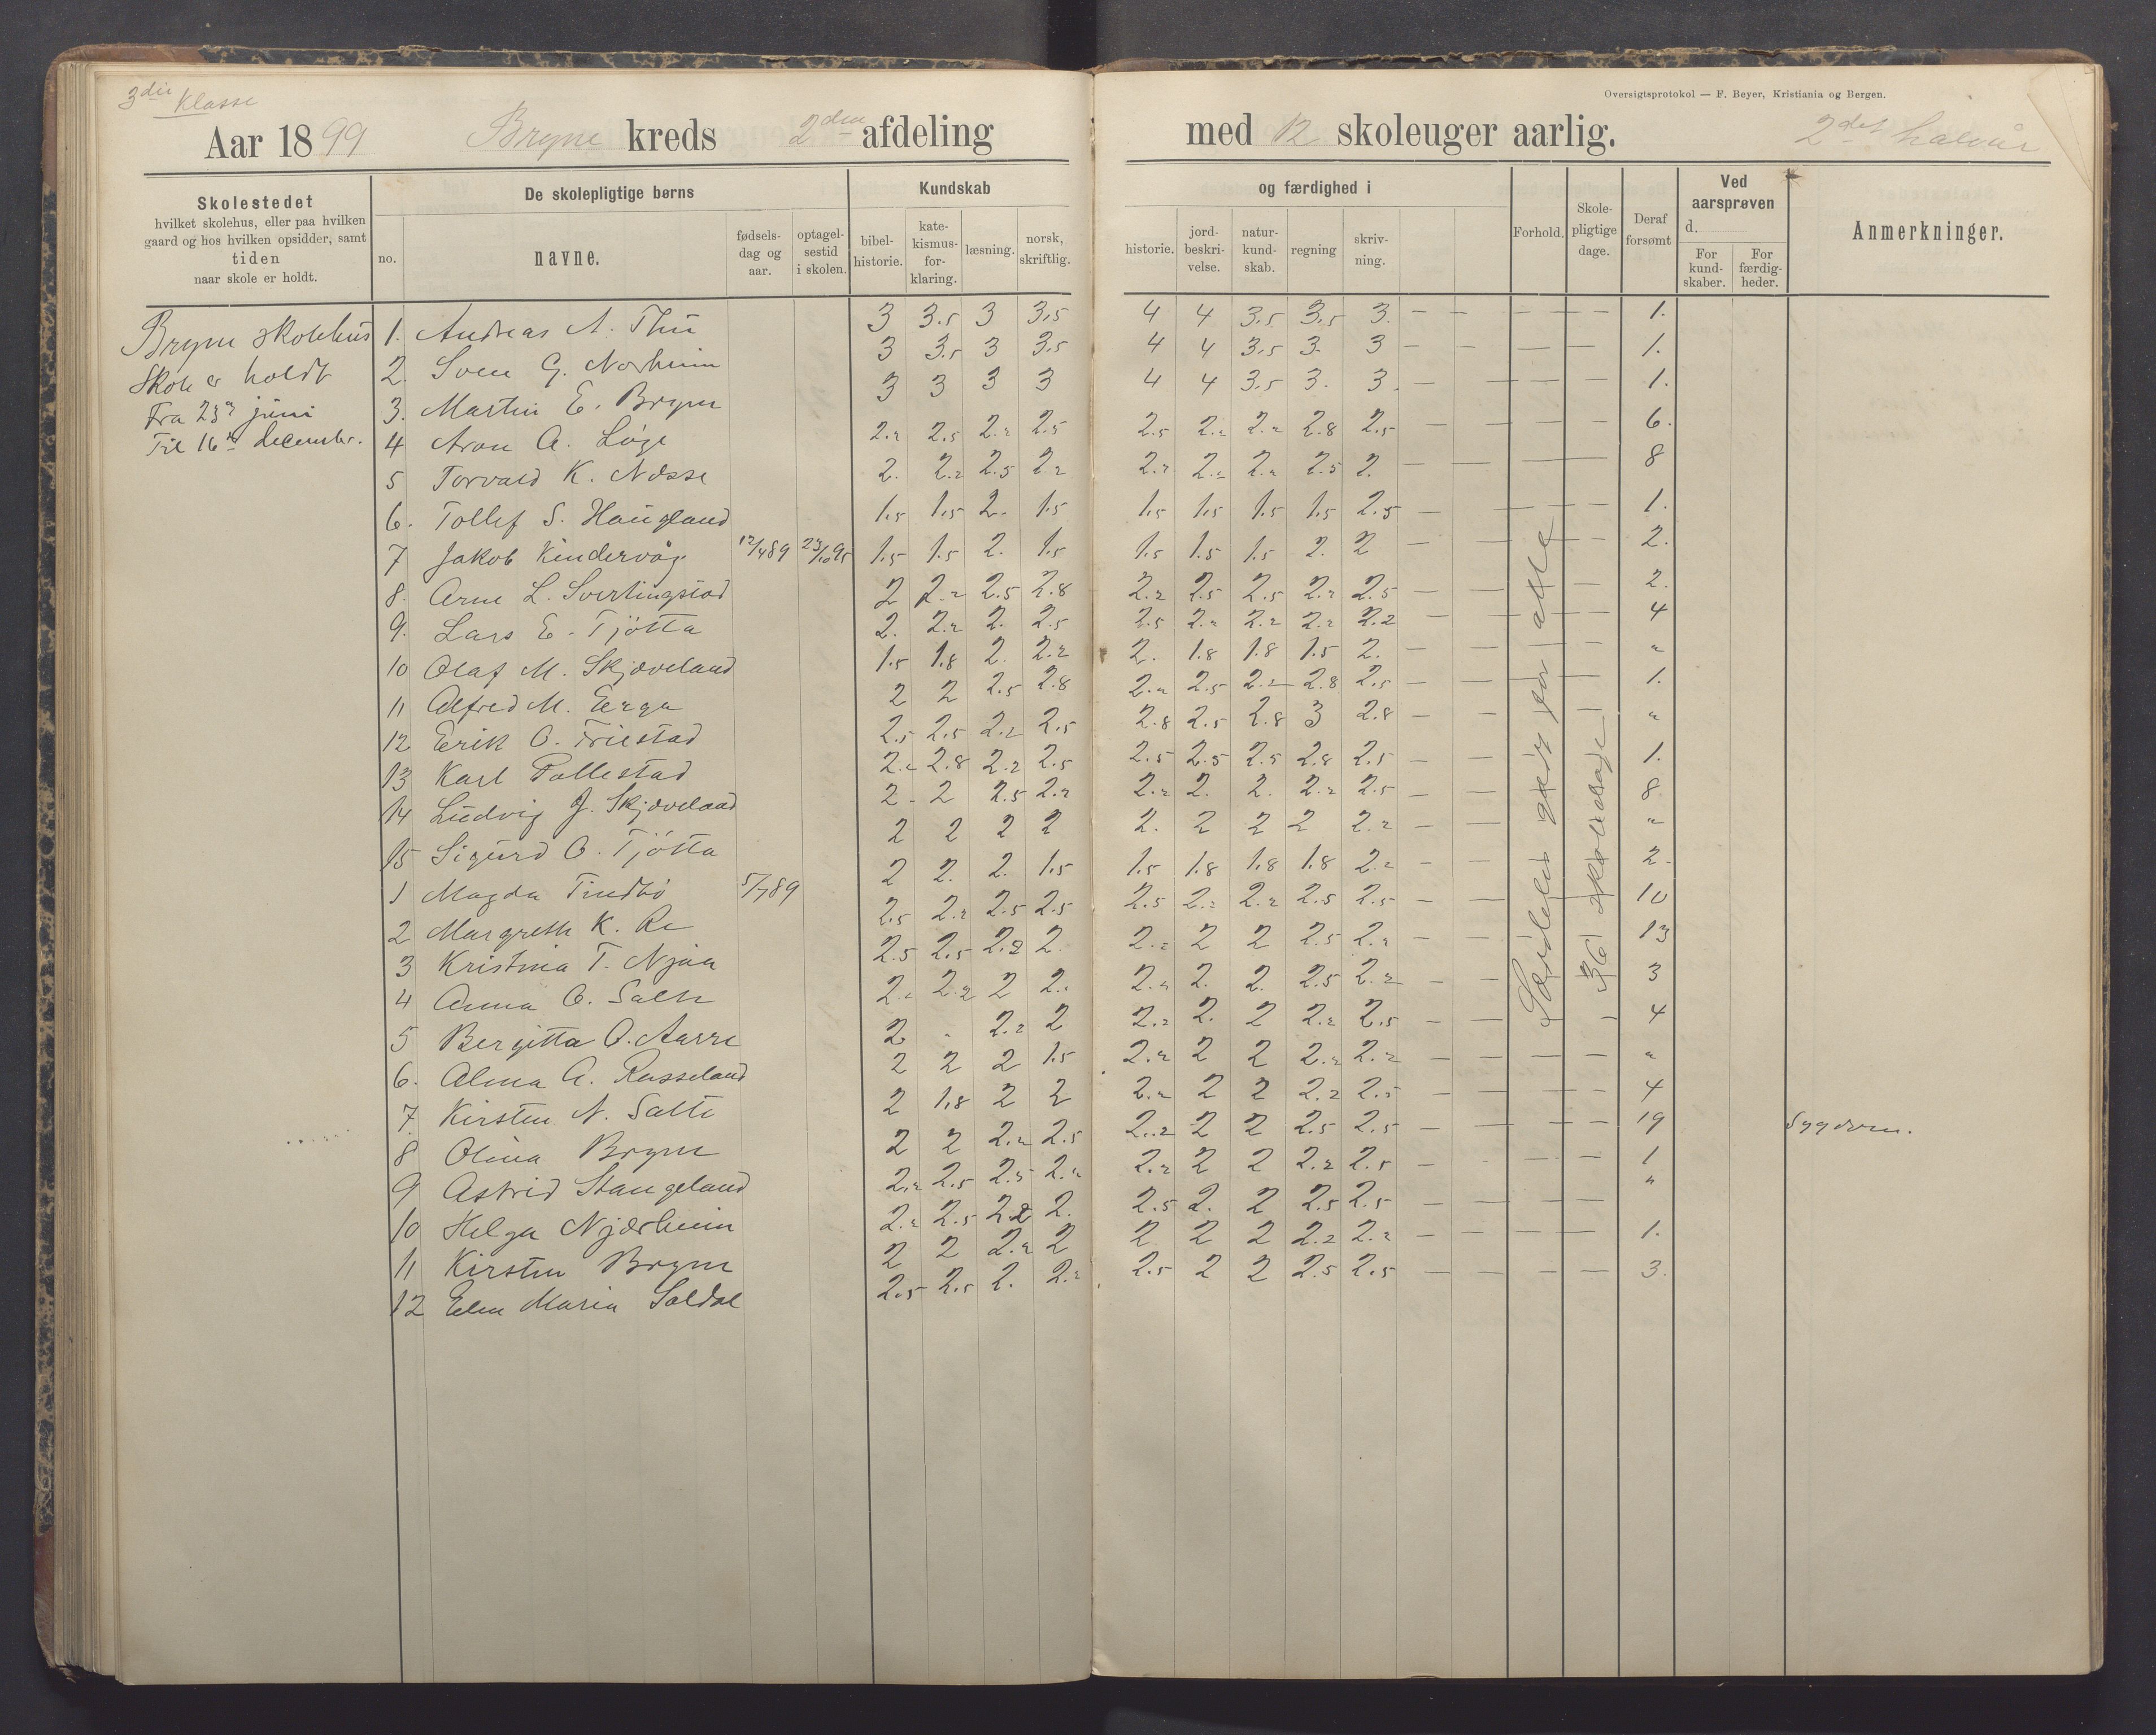 3die Klasse
Oversigtsprotokol — F. Beyer, Kristiania og Bergen.
Aar 1899 Bryne kreds 2den afdeling med 12 skoleuger aarlig. 2det halvår
Skolestedet
hvilket skolehus, eller paa hvilken
gaard og hos hvilken opsidder, samt
tiden
naar skole er holdt.
De skolepligtige børns
no.
navne.
fødsels-
dag og
aar.
optagel-
sestid
i skolen.
Kundskab
bibel-
historie.
kate-
kismus-
for-
klaring.
læsning.
norsk,
skriftlig.
og færdighed i
historie.
jord-
beskri-
velse.
natur-
kund-
skab.
regning
skriv-
ning.
Forhold.
Skole-
pligtige
dage.
Deraf
forsømt
Ved
aarsprøven
d.
For
kund-
skaber.
For
færdig-
heder.
Anmerkninger.
Bryne skolehus
Skole er holdt
Fra 23de juni
Til 16de december.
1. Andreas A. Thu 3 3.5 3 3.5 4 4 3.5 3.5 3. — — — — 1.
2. Sven G. Norheim 3 3.5 3 3.5 4 4 3.5 3. 3 — — — — 1.
3. Martin E. Bryne 3 3 3 3 4 4 3.5 3. 3. — — — — 1.
4 Aron A. Løge 2.2 2.5 2.2 2.5 2.5 2.2 2.2 2.8 2.5 — — — — 6.
5 Torvald K. Næsse 2. 2.2 2.5 2.2 2.2 2.2 2.2 2.5 2. — — — — 8
6. Tollef S. Haugland 1.5 1.5 2. 1.5 1.5 1.5 1.5 1.5 2.5 — — — — 1.
7 Jakob Kindervåg 12/4 89 23/10 95 1.5 1.5 2. 1.5 1.5 1.5 1.5 2. 2 — — — — 2.
8. Arne L. Svertingstad 2 2.2 2.5 2.8 2.2 2.5 2.5 2.2 2.5 — — — 2.
9. Lars E. Tjøtta 2. 2.2 2. 2.5 2.5 2.2 2.2 2.2 2.2 — — — — 4
10 Olaf M. Skjæveland 1.5 1.8 2. 2.2 2. 1.8 1.8 1.5 2. — — — "
11 Alfred M. Eerga 2 2 2.5 2.8 2.2 2.5 2.2 2.8 2.5 — — — 1.
12 Eerik O. Friestad 2.5 2.5 2.2 2.5 2.8 2.5 2.8 3 2.8 — — "
13 Karl Tollestad 2.2 2.8 2.2 2.5 2.5 2.5 2.5 2.8 2.5 — — 1.
14 Ludvig J. Skjæveland 2 2 2.5 2.2 2.2 2. 2. 2.2 2.5 — — 8
15 Sigurd O. Tjøtta 2 2 2 2 2. 2 2 2 2.2 — — "
1 Magda Tindbø 5/7 89 2 2. 2. 1.5 1.5 1.8 1.8 1.8 2.2 — — 2
2 Margreth K. Re 2.5 2.2 2.5 2.5 2.5 2.2 2.2 2.5 2.5 — — 10
3 Kristina T. Njaa 2.5 2.5 2.2 2. 2.2 2 2 2.5 2.2 — — 13
4 Anna O. Salte 2.2 2.2 2 2. 2.2 2. 2. 2.5 2.2 — — 3
5 Bergitta O. Aarre 2 - 2.2 2 2.2 2. 2 2.2 2.5 — — — 4
6. Alma A. Rosseland 2 2 2 1.5 2.2 2 2 2.2 2.2 — — — — "
7. Kirsten N. Salte 2 1.8 2 2 2.2 2 2 2.2 2.5 — — — — 4
8 Olina Bryne 2 2 2.2 2.5 2.2 2 2 2.5 2.5 — — — — 19 Sygdom.
9 Astrid Stangeland 2.2 2.5 2.5 2.2 2.2 2 2 2.2 2.5 — — — 1
10 Helga Njærheim 2.2 2.5 2.2 2. 2.5 2. 2 2.5 2.5 — — — — "
11 Kirsten Bryne 2 2 2.2 2 2 2 2 2.2 2.2 — — — — 1.
12 Elen Maria Soldal 2.5 2.5 2. 2.2 2.5 2 2 2.5 2.5 — — — — 3.
Særdeles godt for alle
36 skoledage